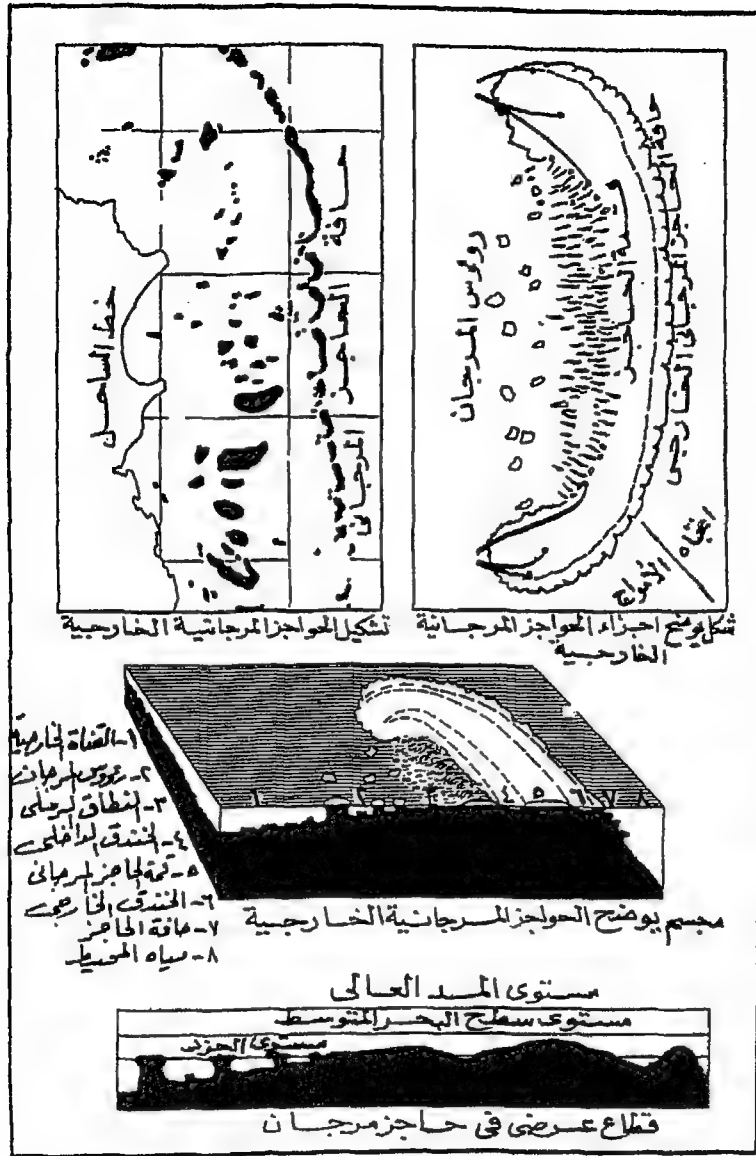 حافة الحاجز المرجاني الخارجي
قمة الحاجز
رؤوس المرجان
اتجاه الأمواج
شكل يوضح اجزاء الحواجز المرجانية
الخارجية
حافة الحاجز المرجاني
خط الساحل
تشكيل الحواجز المرجانية الخارجية
١ ٥ ٦ ٧ ٨
١- القناة الخارجية
٢- رؤوس المرجان
٣- النطاق الرملى
٤- الخندق الداخلى
٥- قمة الحاجز المرجانى
٦- الخندق الخارجى
٧- حافة الحاجز
٨- مياه المحيط
مجسم يوضح الحواجز المرجانية الخارجية
مستوى المد العالى
مستوى سطح البحر المتوسط
مستوى الجزر
قطاع عرضى فى حاجز مرجان